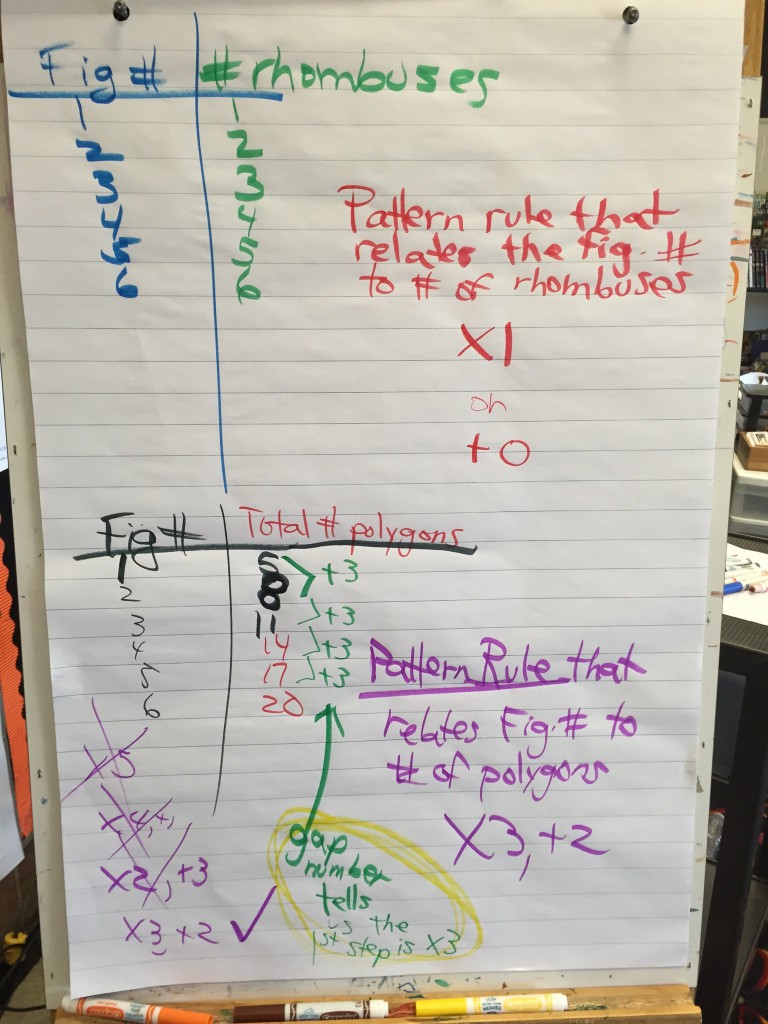 Fig # # rhombuses
1 1
2 2
3 3
4 4
5 5
6 6
Pattern rule that
relates the fig. #
to # of rhombuses
X1
oh
+0
Fig # Total # polygons
1 5 +3
2 8
3 11 +3
4 14 +3
5 17 +3
6 20
Pattern Rule that
relates Fig. # to
# of polygons
X3, +2
X5
X4, +1
X2, +3
X3 +2 ✓
gap
number
tells
us the
1st step is X3